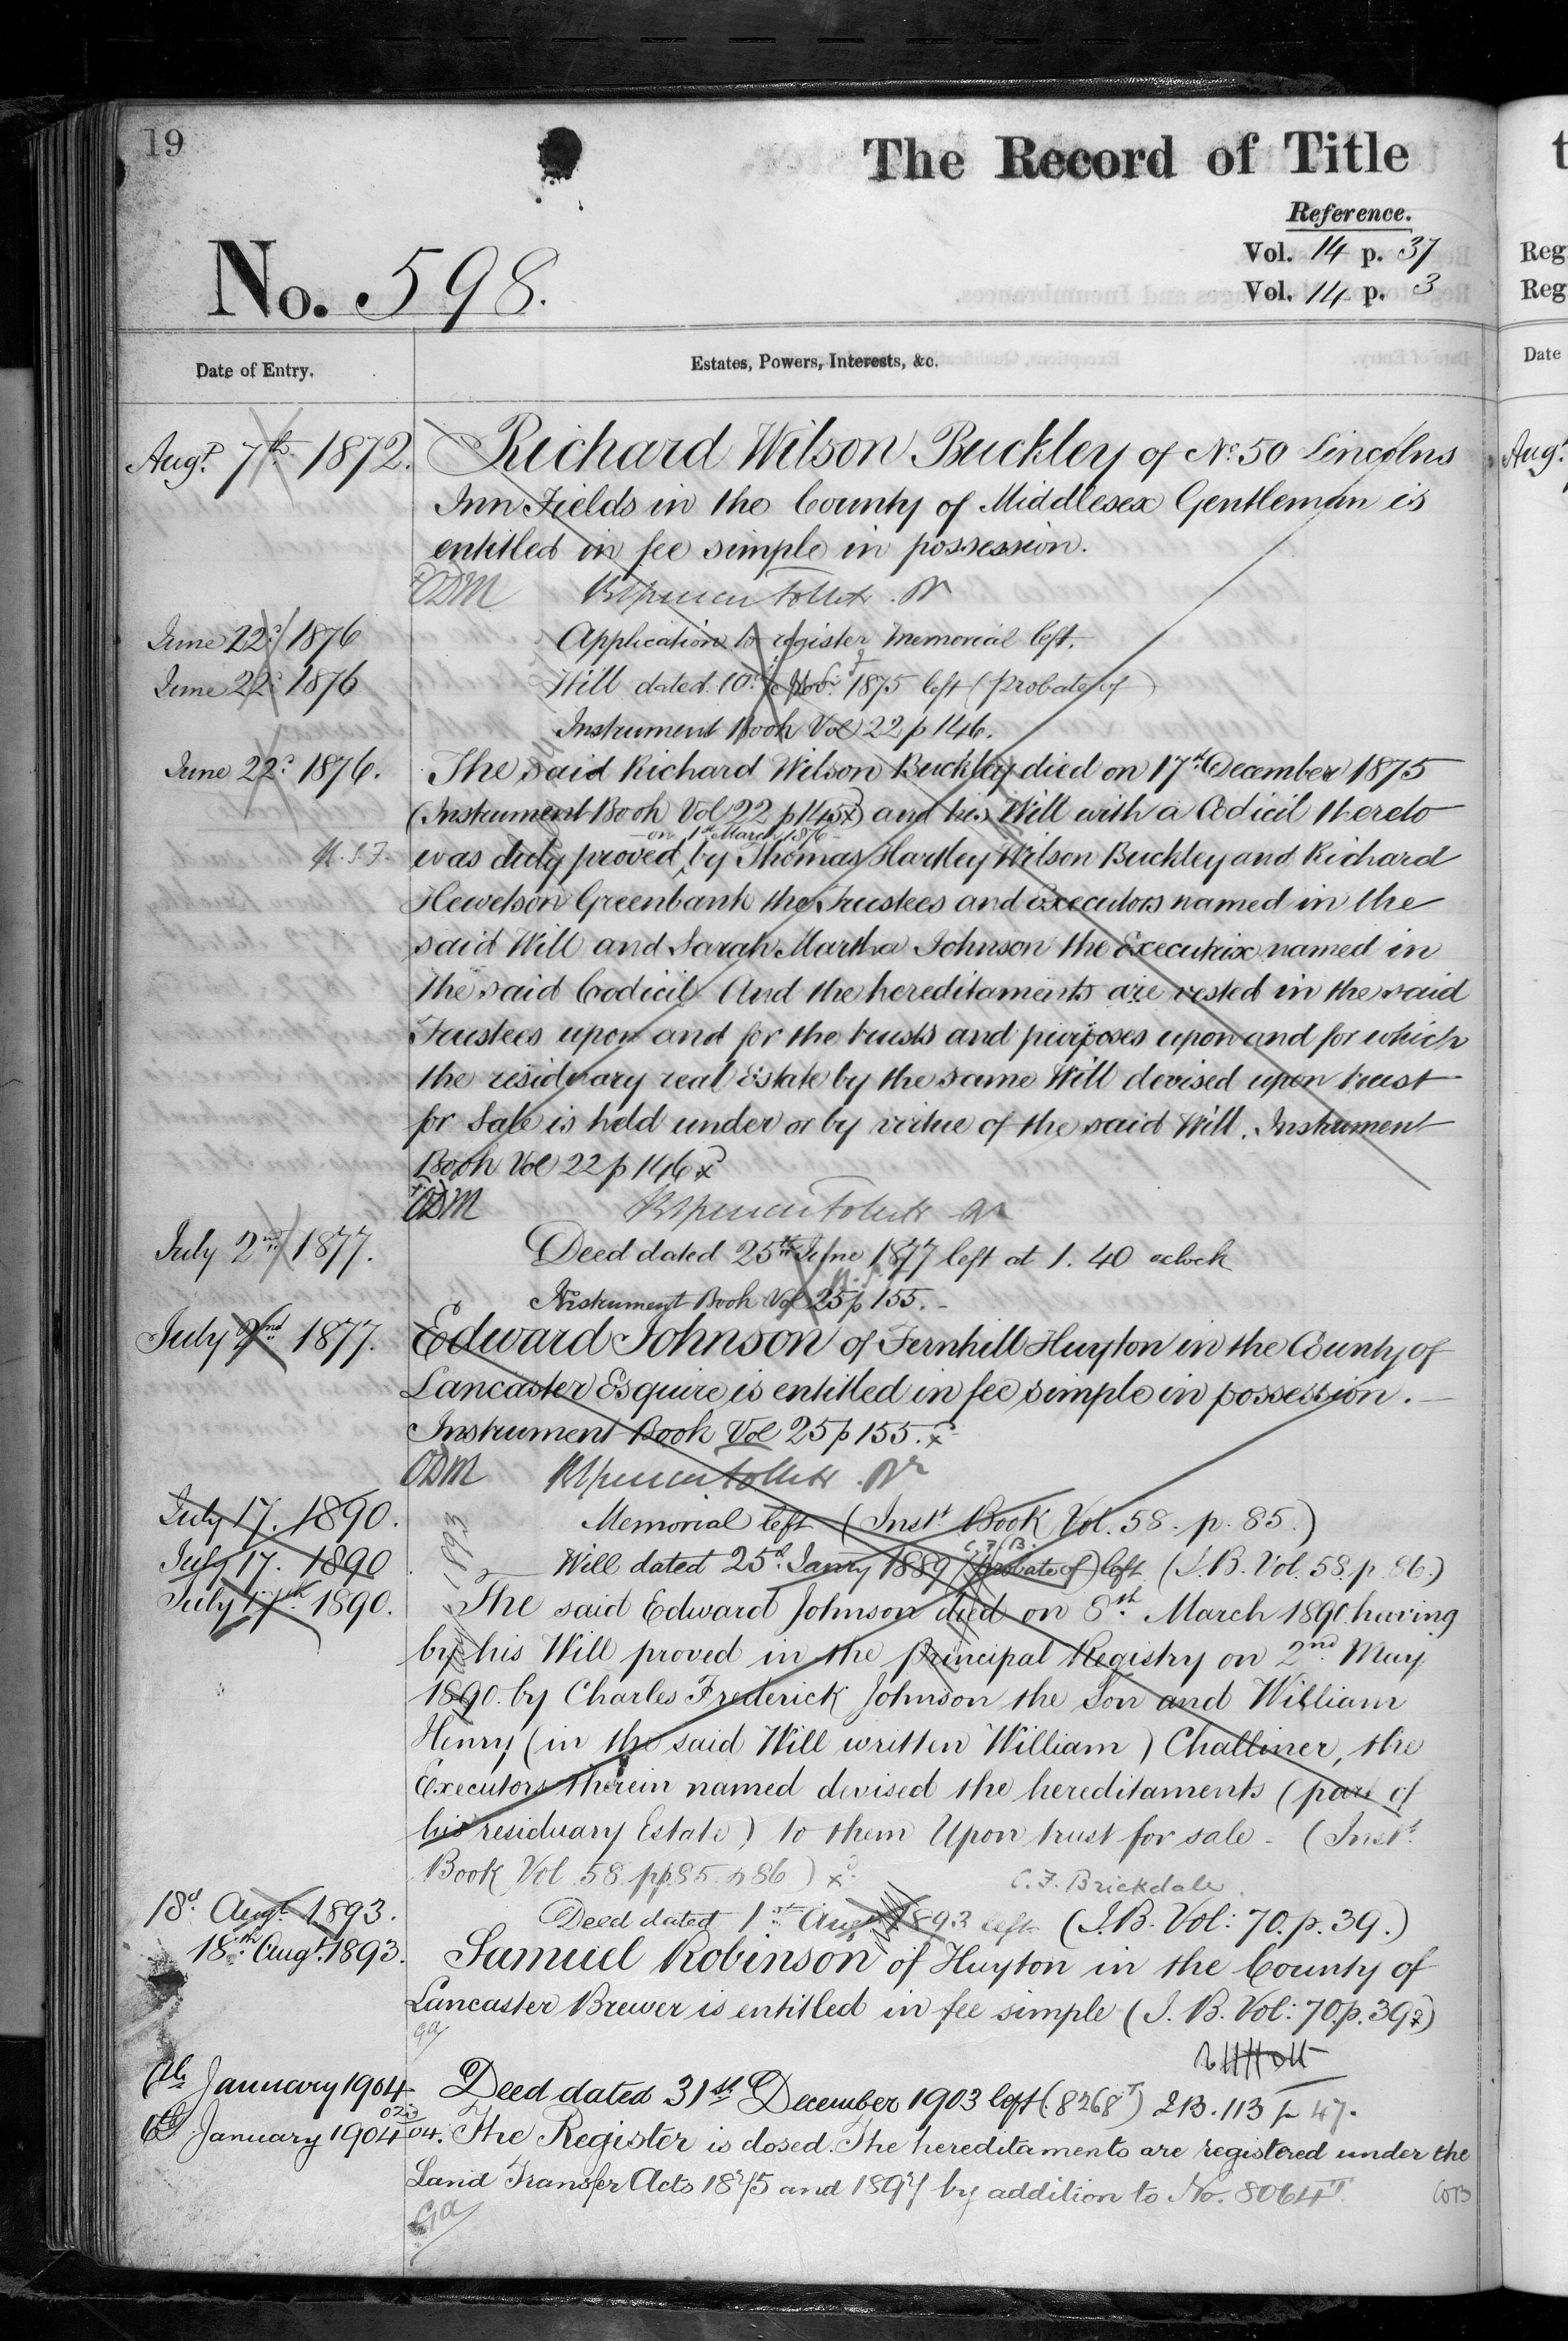 19
The Record of Title
Reference.
Vol. 14 p. 37
Vol. 14 p. 3
No. 598.
Date of Entry.
Estates, Powers, Interests, &c.
Augt. 7th 1872. Richard Wilson Buckley of No. 50 Lincolns
Inn Fields in the County of Middlesex Gentleman is
entitled in fee simple in possession.
ODM
June 22d 1876 Application to register Memorial left.
June 22d 1876 Will dated 10th Nov. 1875 left (probate of)
Instrument Book Vol 22 p 146.
June 22d 1876. The said Richard Wilson Buckley died on 17th December 1875
(Instrument Book Vol 22 p 145) and his Will with a Codicil thereto
on 1st March 1876
was duly proved by Thomas Hartley Wilson Buckley and Richard
Hewetson Greenbank the Trustees and Executors named in the
said Will and Sarah Martha Johnson the Executrix named in
the said Codicil And the hereditaments are vested in the said
Trustees upon and for the trusts and purposes upon and for which
the residuary real Estate by the same Will devised upon trust
for Sale is held under or by virtue of the said Will. Instrument
Book Vol 22 p 146
ODM
July 2nd 1877. Deed dated 25th June 1877 left at 1.40 oclock
Instrument Book Vol 25 p 155.
July 2nd 1877. Edward Johnson of Fernhill Huyton in the County of
Lancaster Esquire is entitled in fee simple in possession.
Instrument Book Vol 25 p 155.
ODM
July 17. 1890. Memorial left (Instt Book Vol. 58. p. 85.)
C.F.B.
July 17. 1890 Will dated 25th Jany 1889 (probate of) left (I.B. Vol. 58. p. 86.)
July 17th 1890. The said Edward Johnson died on 8th March 1890 having
by his Will proved in the Principal Registry on 2nd May
1890 by Charles Frederick Johnson the Son and William
Henry (in the said Will written William) Challiner, the
Executors therein named devised the hereditaments (part of
his residuary Estate) to them Upon trust for sale - (Instt
Book Vol 58. pp. 85. & 86)
C.F. Brickdale
1893
18th Augt 1893. Deed dated 1st Augt 1893 left (I.B. Vol: 70. p. 39.)
18th Augt. 1893. Samuel Robinson of Huyton in the County of
Lancaster Brewer is entitled in fee simple (I.B. Vol: 70. p. 39)
6th January 1904 Deed dated 31st December 1903 left (8268T) IB. 113 p 47.
6th January 1904 The Register is closed. The hereditaments are registered under the
Land Transfer Acts 1875 and 1897 by addition to No. 8064T.
t
Reg
Reg
Date
Aug.